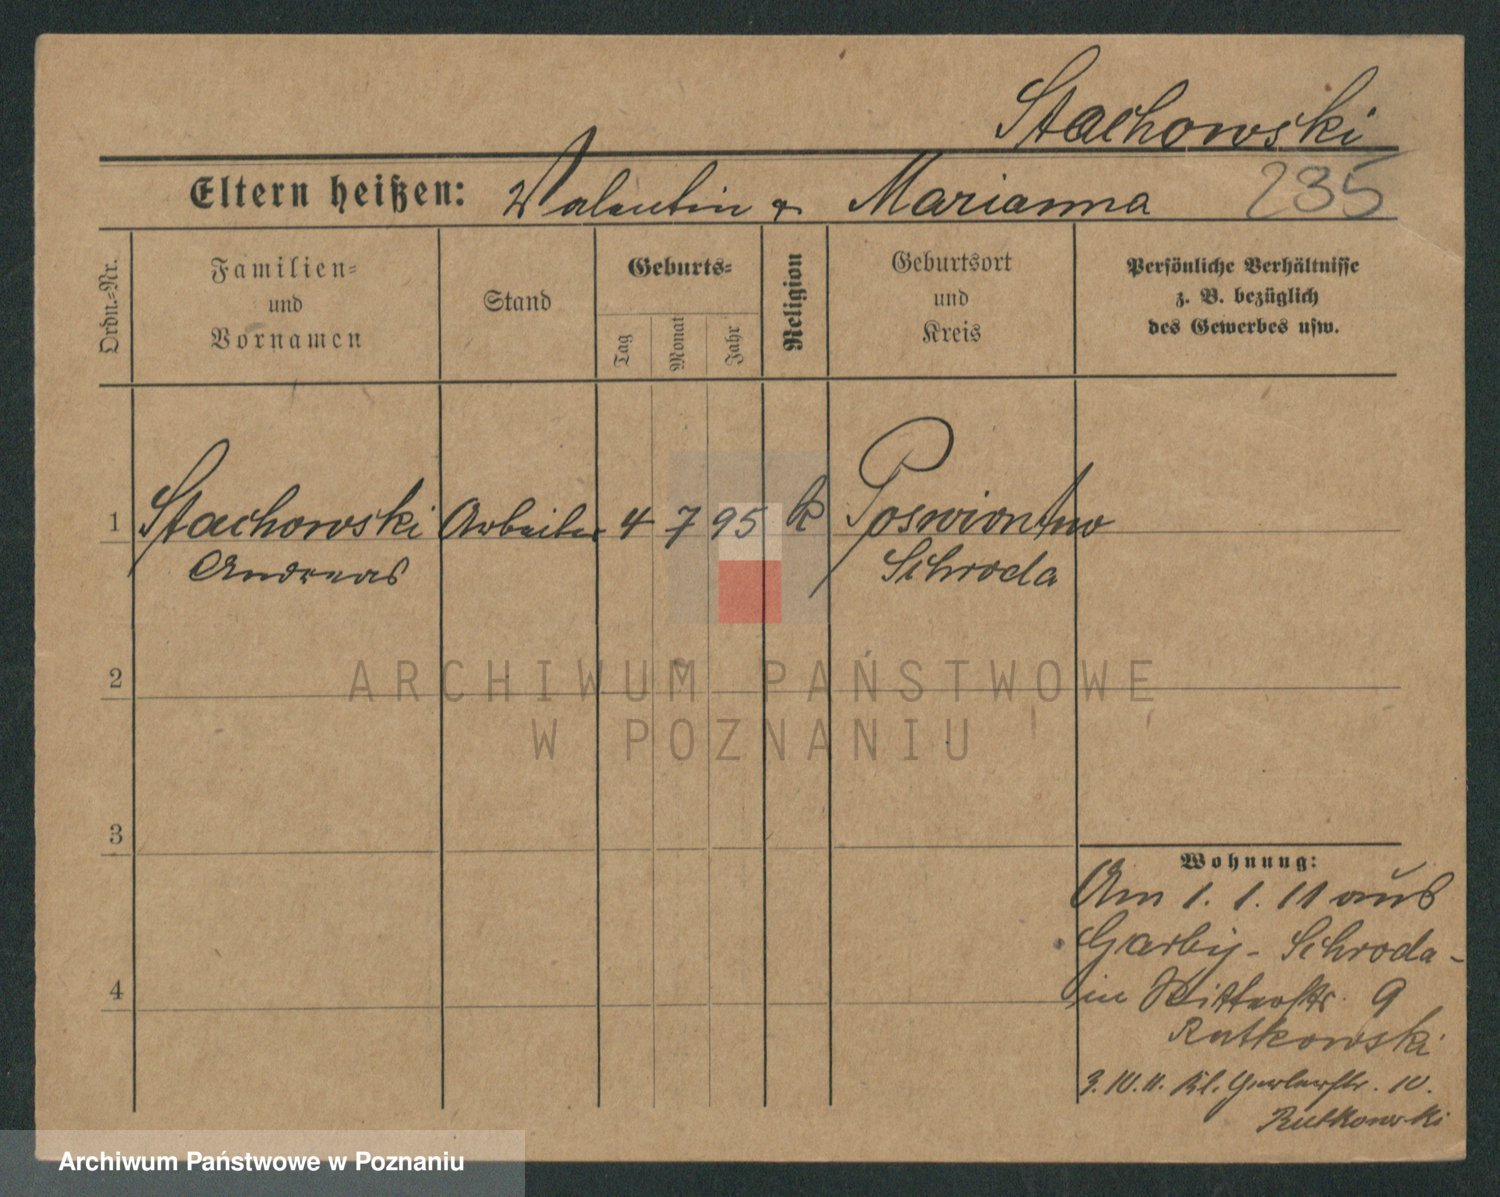 Stachowski
Eltern heißen: Valentin & Marianna 235
Ordn.=Nr.
Familien=
und
Vornamen
Stand
Geburts=
Tag
Monat
Jahr
Religion
Geburtsort
und
Kreis
Persönliche Verhältnisse
z. B. bezüglich
des Gewerbes usw.
1 Stachowski Arbeiter 4 7 95 k Poswiontno
Andreas Schroda
2
ARCHIWUM PAŃSTWOWE
W POZNANIU
3
Wohnung:
Am 1. 1. 11 aus
Garby - Schroda -
4
in Ritterstr. 9
Rutkowski
3. IV. 11. Kl. Gerberstr. 10.
Rutkowski
Archiwum Państwowe w Poznaniu